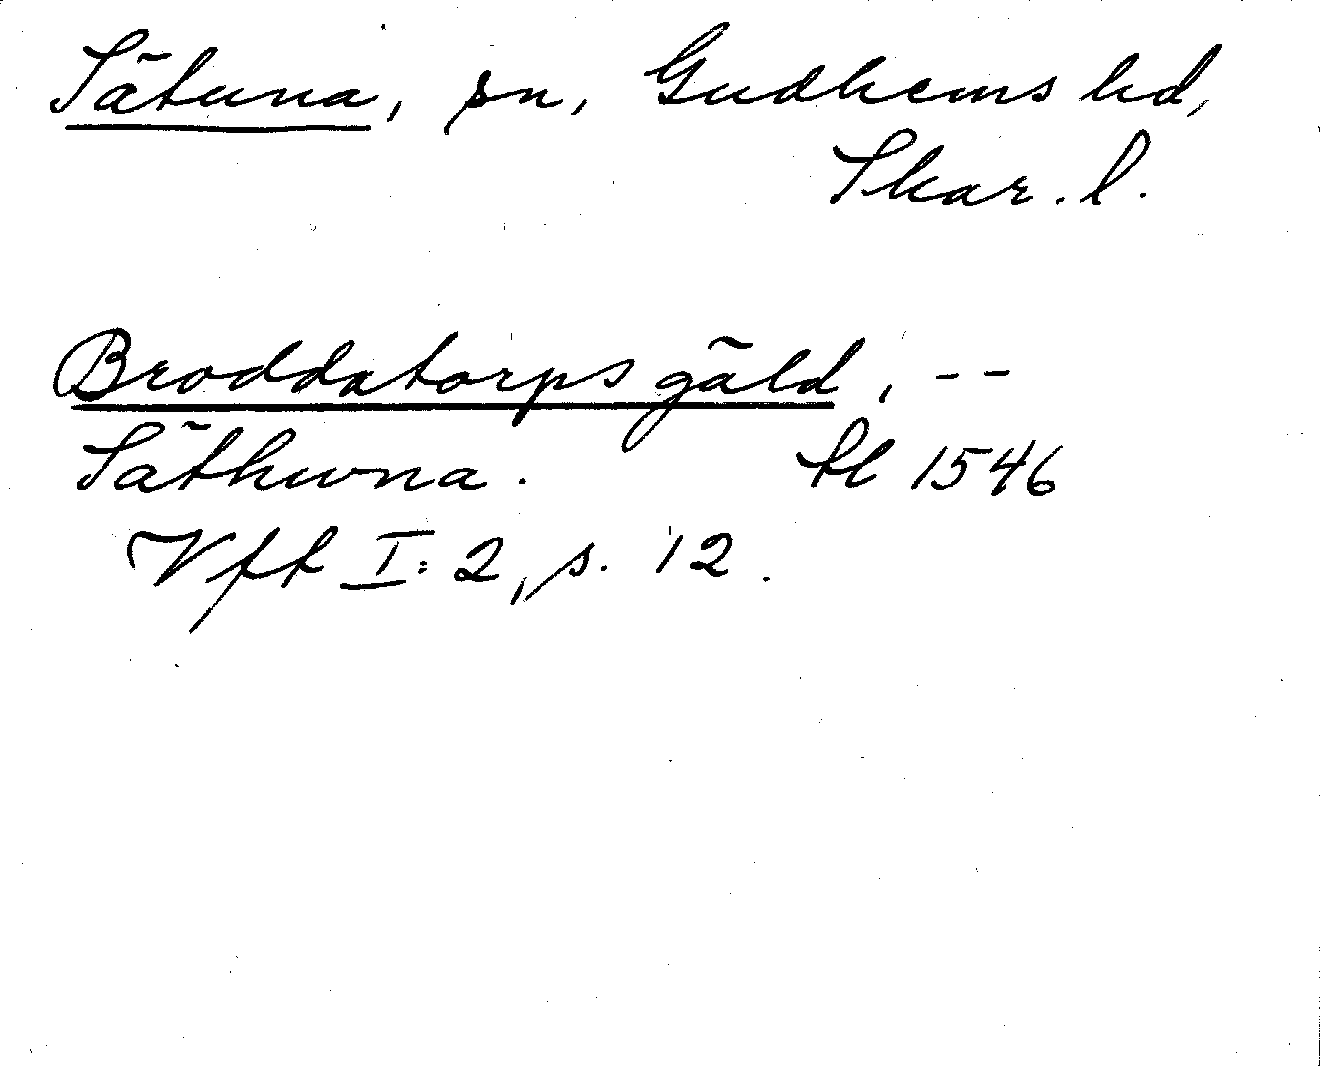 Sätuna, sn, Gudhems hd,
Skar. l.
Broddatorps gäld, --
Säthuna. tl 1546
Vft I: 2, s. 12.